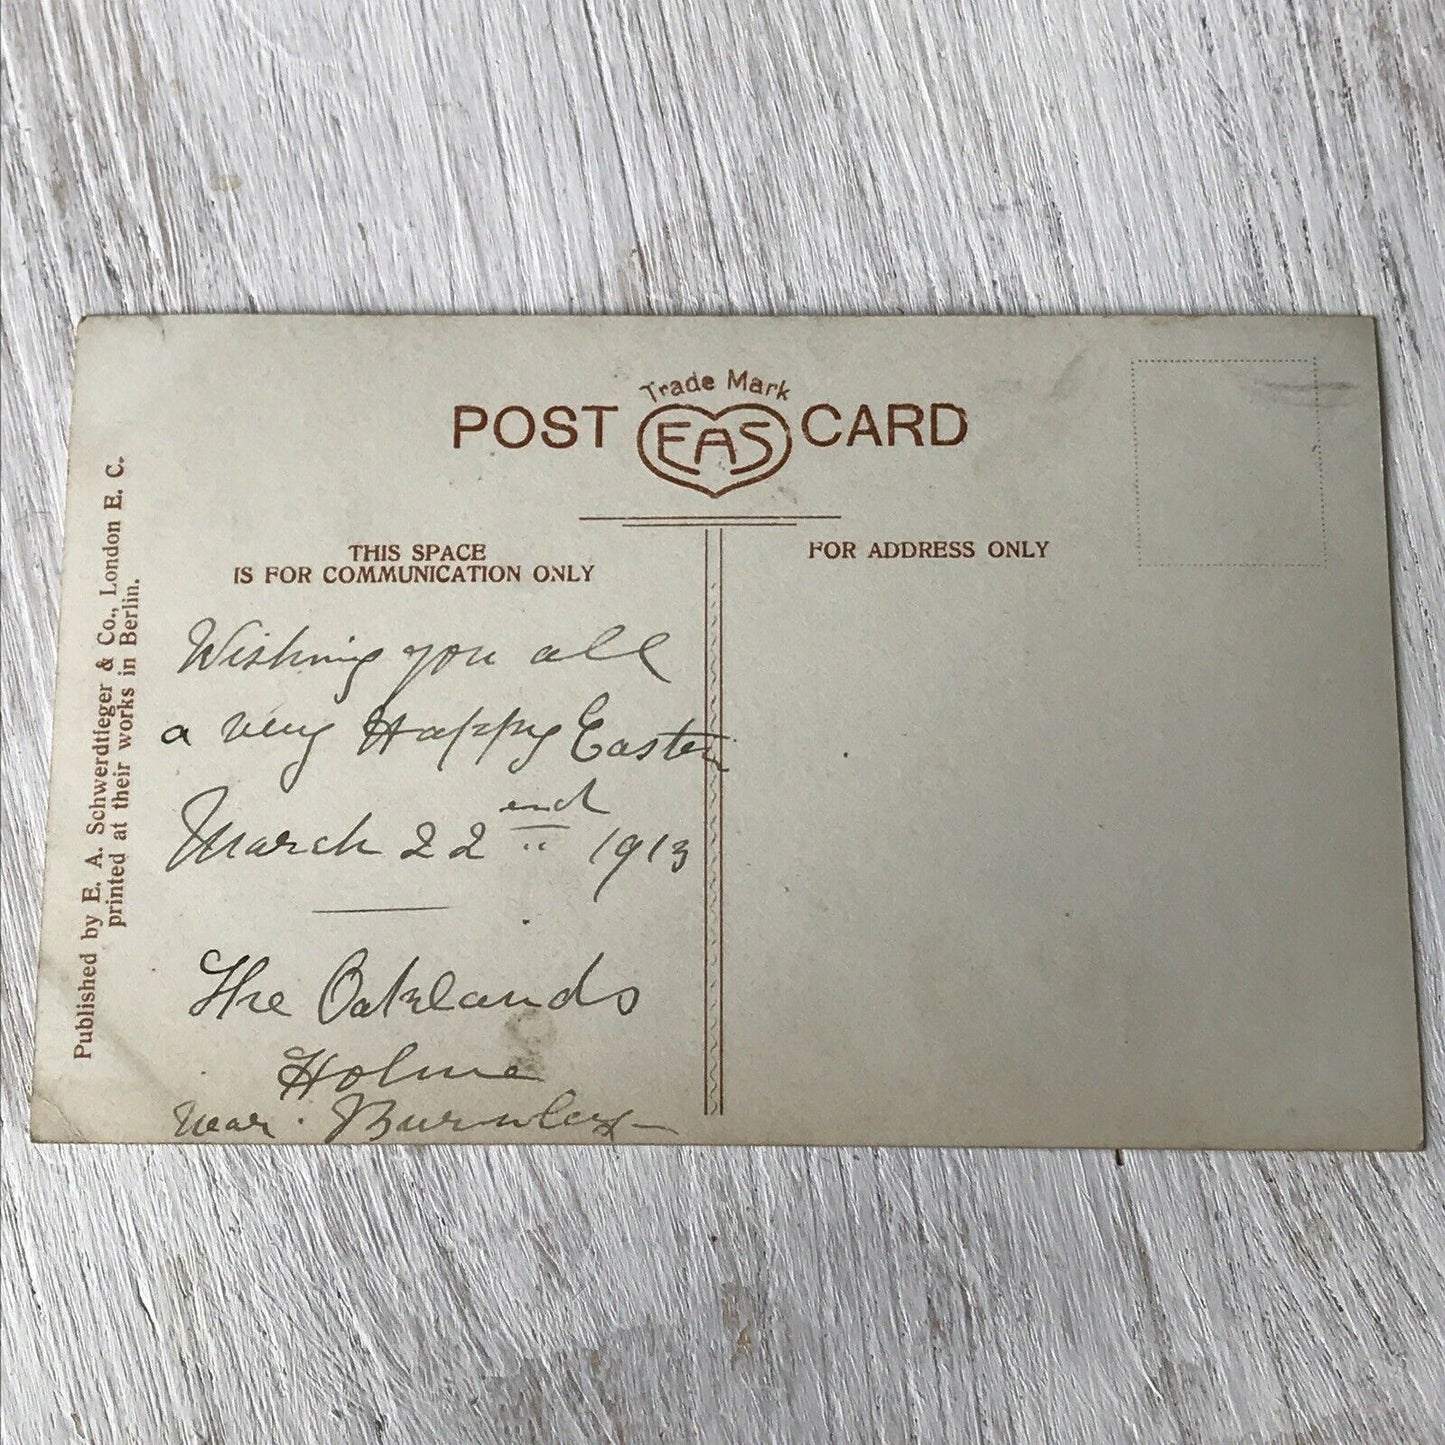 Trade Mark
POST EAS CARD
THIS SPACE
IS FOR COMMUNICATION ONLY
FOR ADDRESS ONLY
Published by E. A. Schwerdtfeger & Co., London E. C.
printed at their works in Berlin.
Wishing you all
a very Happy Easter
March 22nd 1913
The Oaklands
Holme
near Burnley